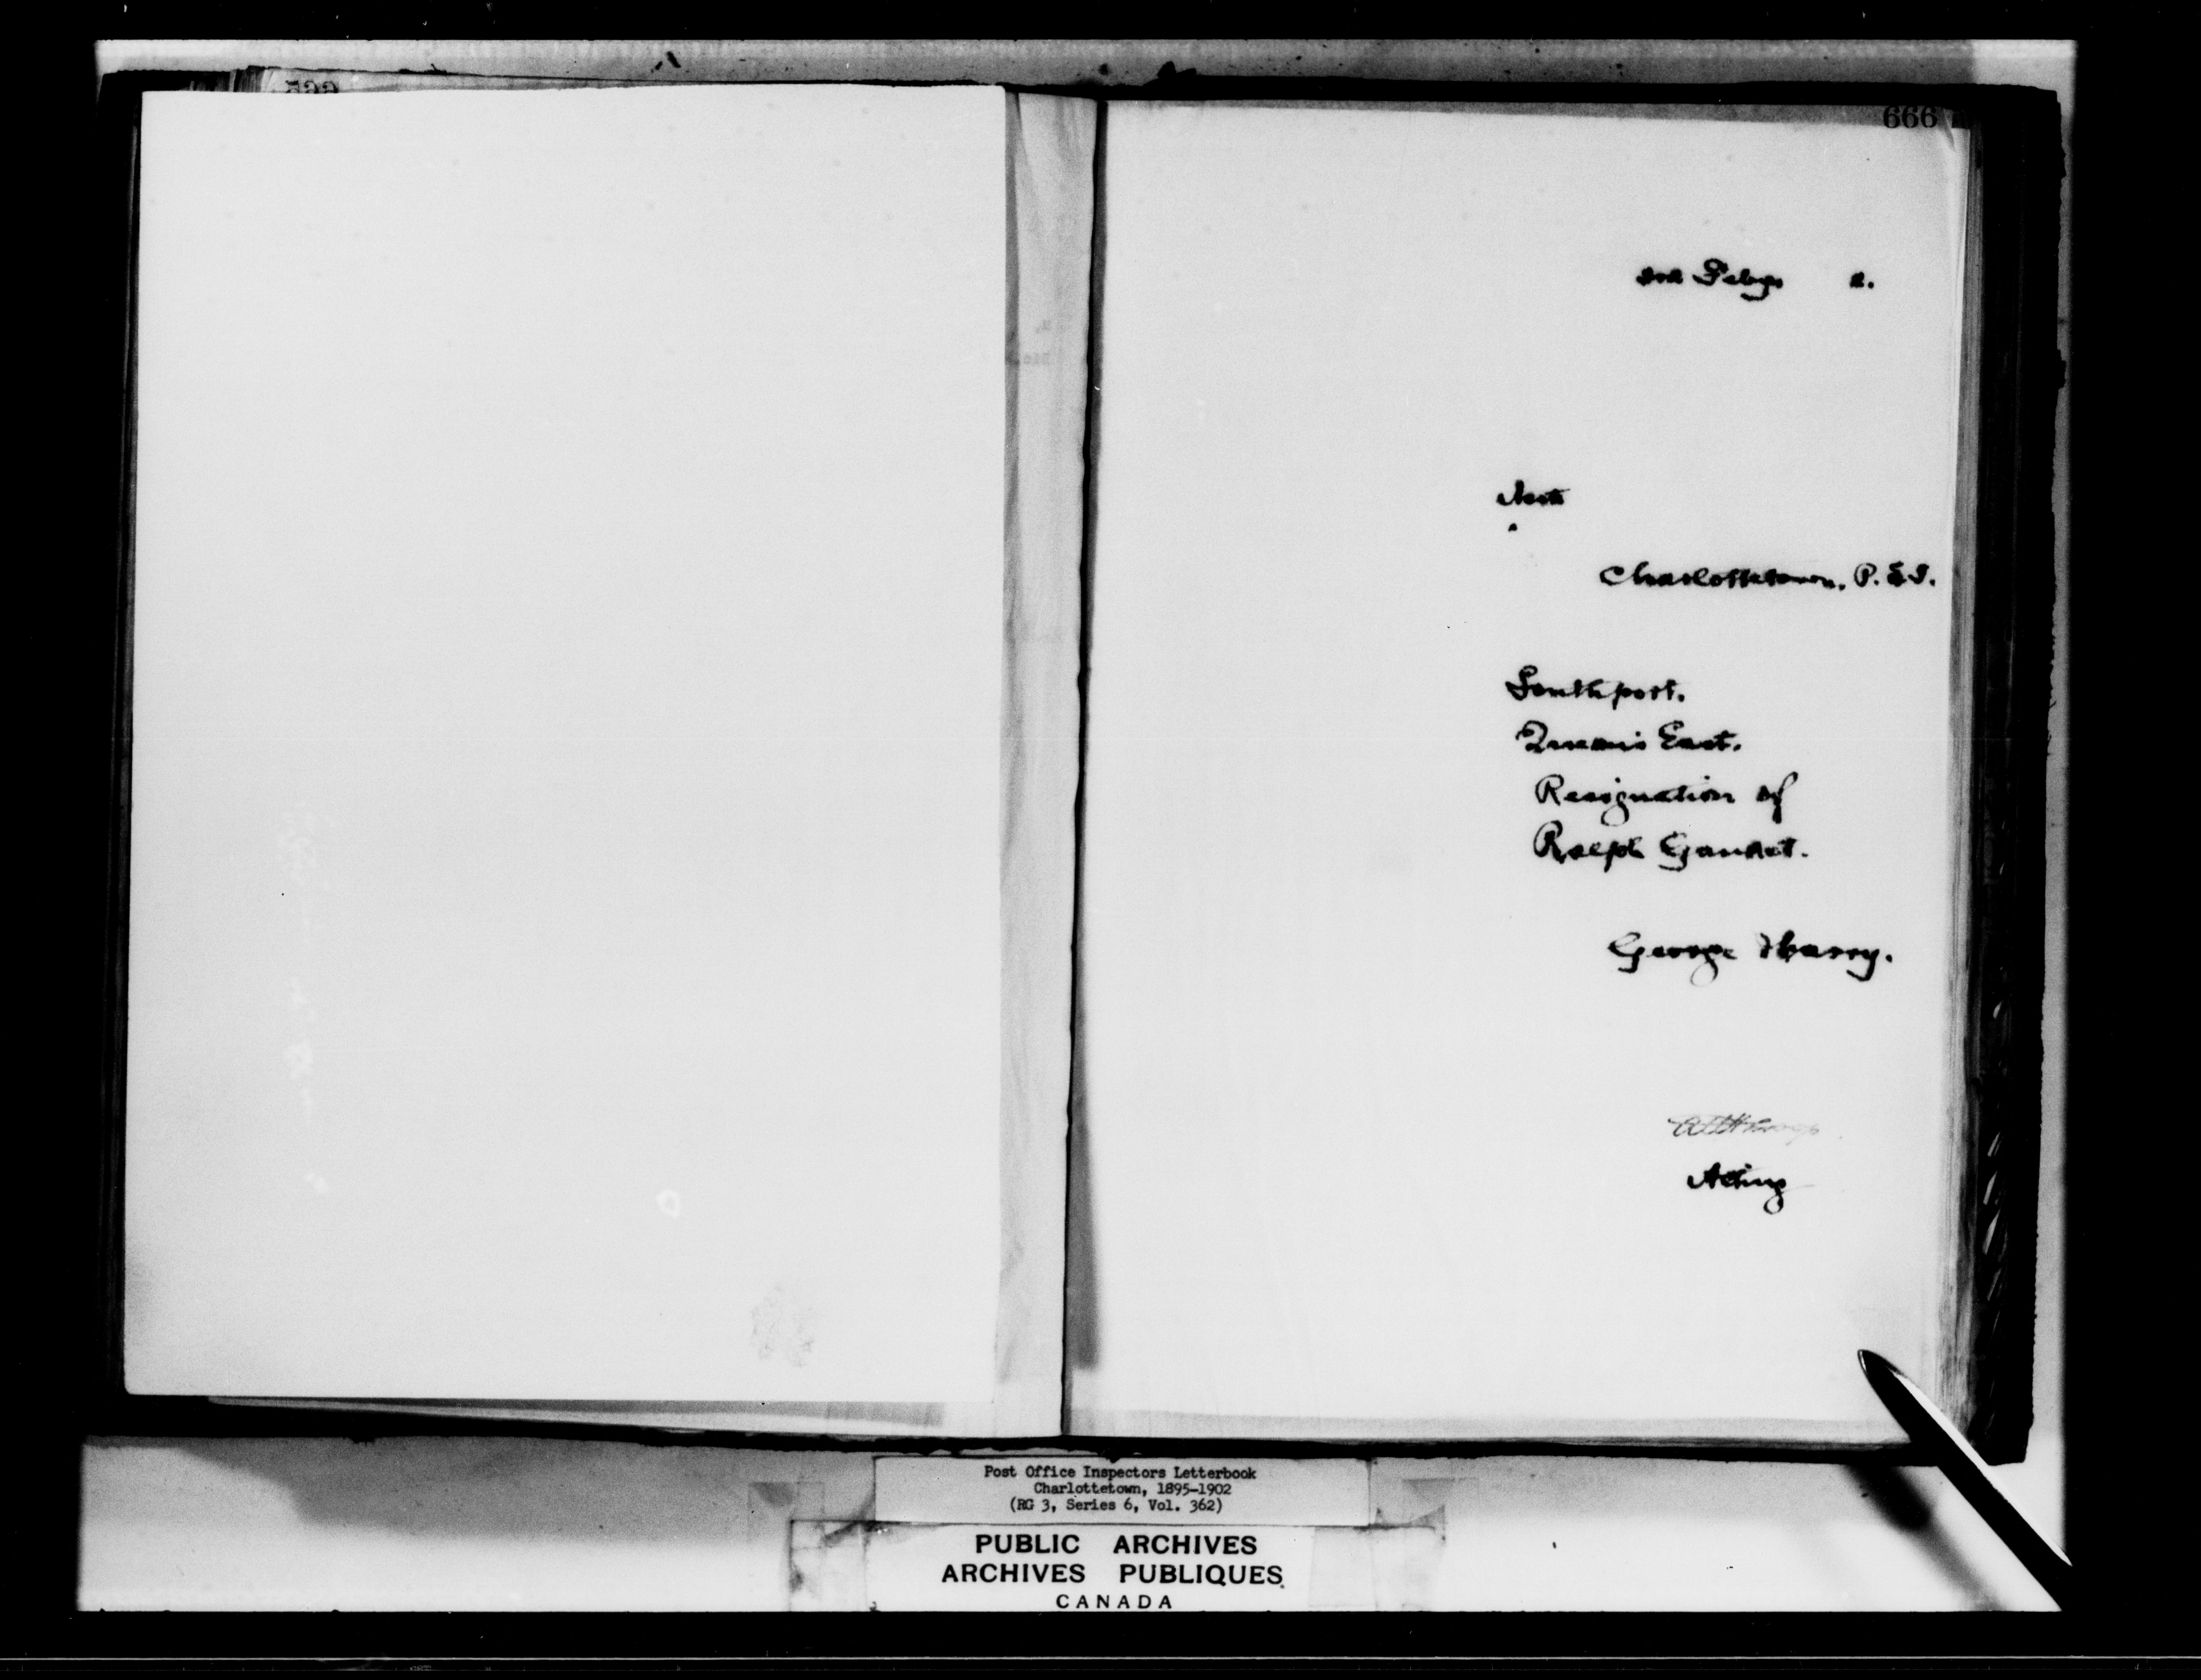 666
Feby 2.
Asst
Charlottetown, P.E.I.
Southport.
Queens East.
Resignation of
Ralph Gaudet.
George Harry.
Acting
Post Office Inspectors Letterbook
Charlottetown, 1895-1902
(RG 3, Series 6, Vol. 362)
PUBLIC ARCHIVES
ARCHIVES PUBLIQUES
CANADA